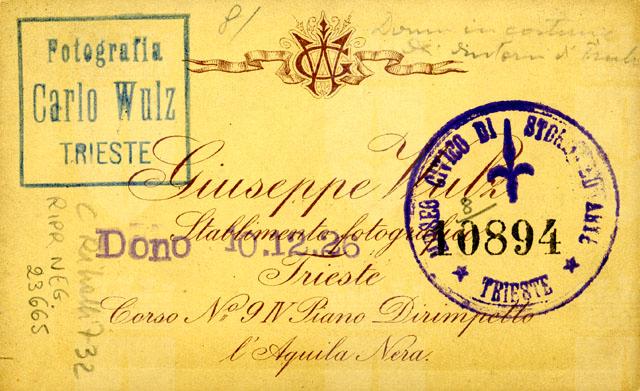 Fotografia
Carlo Wulz
TRIESTE
8/
Donna in costume
di dintorni di
Giuseppe Wulz
Stabilimento fotografico
Trieste
Corso No. 9 IV Piano Dirimpetto
l'Aquila Nera.
Dono 10.12.26
MUSEO CIVICO DI STORIA ED ARTE
8/
10894
TRIESTE
RIPR. NEG.
23665
7-32